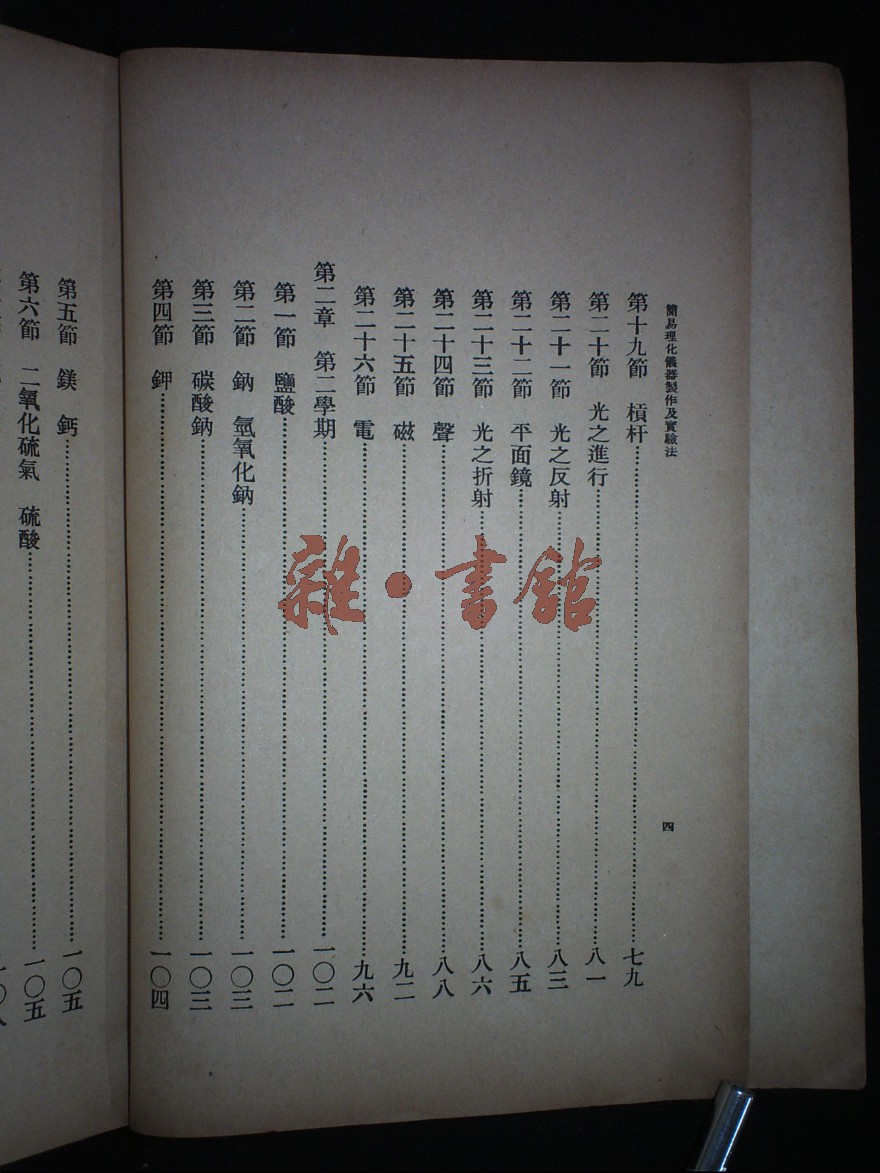 簡易理化儀器製作及實驗法
四
第十九節 槓杆……七九
第二十節 光之進行……八一
第二十一節 光之反射……八三
第二十二節 平面鏡……八五
第二十三節 光之折射……八六
第二十四節 聲……八八
第二十五節 磁……九二
第二十六節 電……九六
第二章 第二學期……一〇二
第一節 鹽酸……一〇二
第二節 鈉 氫氧化鈉……一〇三
第三節 碳酸鈉……一〇三
第四節 鉀……一〇四
第五節 鎂 鈣……一〇五
第六節 二氧化硫氣 硫酸……一〇五
雜·書館